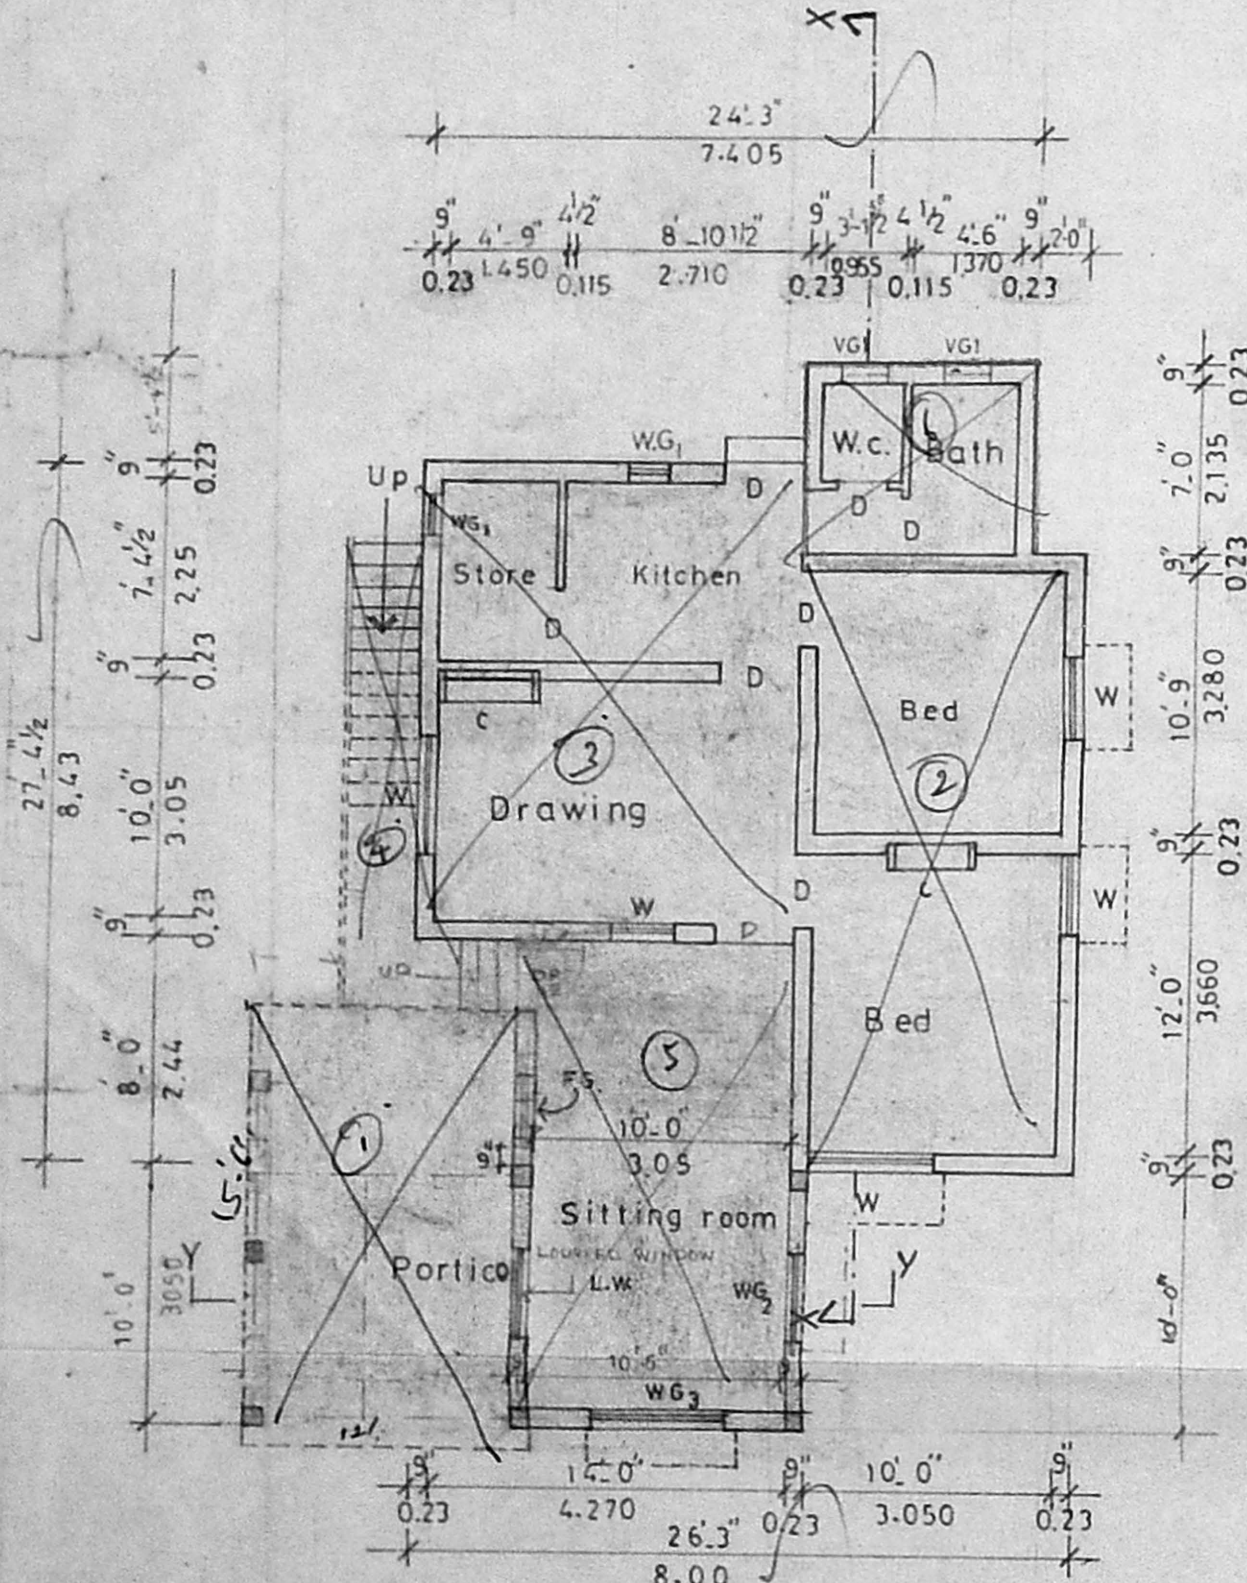 X
24'-3"
7.405
9" 4'-9" 4 1/2" 8'-10 1/2" 9" 3'-1 1/2" 4 1/2" 4'-6" 9" 2'-0"
0.23 1.450 0.115 2.710 0.23 0.955 0.115 1.370 0.23
VG1 VG1
W.G1
W.c. Bath
Up
WG1
Store Kitchen
D D D
D D D
C
3
Drawing
W
4
W
D D
Bed
2
W
C
W
Bed
W
up
5
F.S.
10'-0"
3.05
9"
Sitting room
LOUVRED WINDOW
L.W.
WG2
10'-6"
WG3
1
Portico
15'-0"
12'
Y Y
X
27'-4 1/2"
8.43
5'-4 1/2"
9" 0.23
7'-4 1/2" 2.25
9" 0.23
10'-0" 3.05
9" 0.23
8'-0" 2.44
10'-0" 3050
9" 0.23
7'-0" 2.135
9" 0.23
10'-9" 3.280
9" 0.23
12'-0" 3.660
9" 0.23
10'-0"
9" 14'-0" 9" 10'-0" 9"
0.23 4.270 0.23 3.050 0.23
26'-3"
8.00